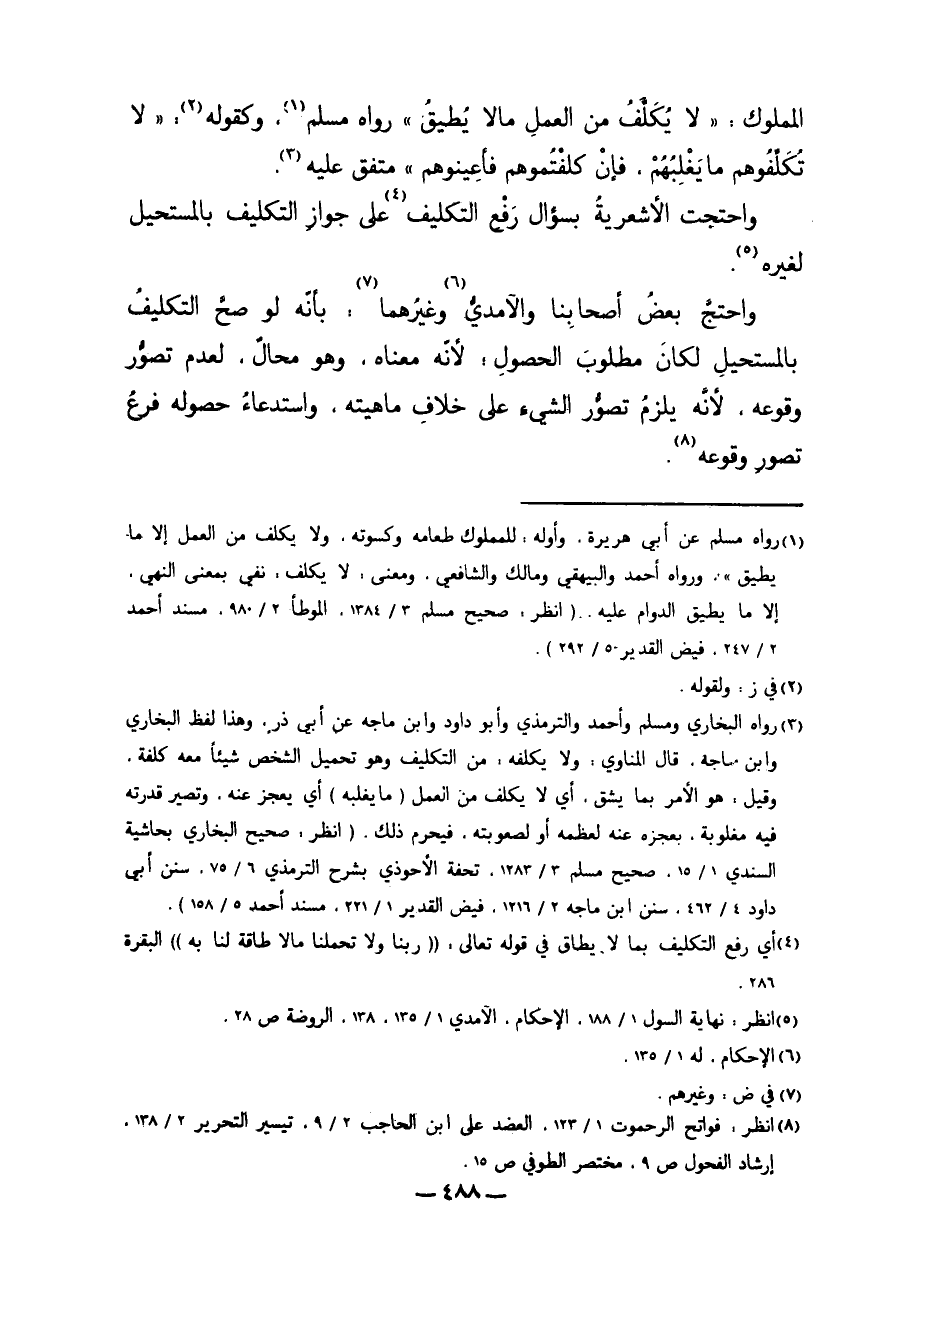 المملوك : « لا يُكَلَّفُ من العملِ مالا يُطيقُ » رواه مسلم(١)، وكقوله(٢): « لا
تُكَلِّفُوهم مايَغْلِبُهُمْ ، فإنْ كلفْتُموهم فأعِينوهم » متفق عليه(٣).
واحتجت الأشعريةُ بسؤال رَفْعِ التكليف(٤)على جوازِ التكليف بالمستحيل
لغيره(٥).
واحتجَّ بعضُ أصحابِنا والآمديُّ(٦) وغيرُهما(٧) : بأنّه لو صحَّ التكليفُ
بالمستحيلِ لكانَ مطلوبَ الحصولِ ؛ لأنّه معناه ، وهو محالٌ ، لعدم تصوُّر
وقوعه ، لأنَّه يلزمُ تصوُّر الشيء على خلافِ ماهيته ، واستدعاءُ حصوله فرعُ
تصورِ وقوعه(٨).
(١)رواه مسلم عن أبي هريرة ، وأوله : للمملوك طعامه وكسوته ، ولا يكلف من العمل إلا ما
يطيق »، ورواه أحمد والبيهقي ومالك والشافعي ، ومعنى : لا يكلف : نفي بمعنى النهي ،
إلا ما يطيق الدوام عليه ..( انظر : صحيح مسلم ٣ / ١٣٨٤ ، الموطأ ٢ / ٩٨٠ ، مسند أحمد
٢ / ٢٤٧ ، فيض القدير ٥ / ٢٩٢ ) .
(٢)في ز : ولقوله .
(٣)رواه البخاري ومسلم وأحمد والترمذي وأبو داود وابن ماجه عن أبي ذر، وهذا لفظ البخاري
وابن ماجة ، قال المناوي : ولا يكلفه : من التكليف وهو تحميل الشخص شيئاً معه كلفة ،
وقيل : هو الأمر بما يشق ، أي لا يكلف من العمل ( مايغلبه ) أي يعجز عنه ، وتصير قدرته
فيه مغلوبة ، بعجزه عنه لعظمه أو لصعوبته ، فيحرم ذلك . ( انظر : صحيح البخاري بحاشية
السندي ١ / ١٥ ، صحيح مسلم ٣ / ١٢٨٣ ، تحفة الأحوذي بشرح الترمذي ٦ / ٧٥ ، سنن أبي
داود ٤ / ٤٦٢ ، سنن ابن ماجه ٢ / ١٢١٦ ، فيض القدير ١ / ٢٢١ ، مسند أحمد ٥ / ١٥٨ ) .
(٤)أي رفع التكليف بما لا يطاق في قوله تعالى : (( ربنا ولا تحملنا مالا طاقة لنا به )) البقرة
٢٨٦ .
(٥)انظر : نهاية السول ١ / ١٨٨ ، الإحكام ، الآمدي ١ / ١٣٥ ، ١٣٨ ، الروضة ص ٢٨ .
(٦)الإحكام ، له ١ / ١٣٥ .
(٧)في ض : وغيرهم .
(٨)انظر : فواتح الرحموت ١ / ١٢٣ ، العضد على ابن الحاجب ٢ / ٩ ، تيسير التحرير ٢ / ١٣٨ ،
إرشاد الفحول ص ٩ ، مختصر الطوفي ص ١٥ .
— ٤٨٨ —